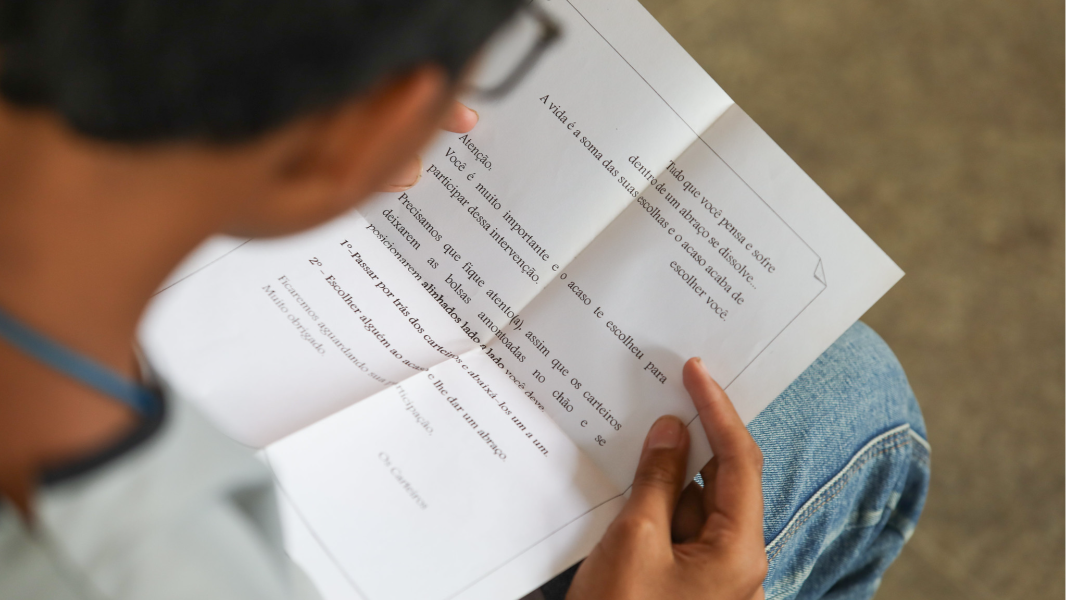 Tudo que você pensa e sofre
dentro de um abraço se dissolve...
A vida é a soma das suas escolhas e o acaso acaba de
escolher você.
Atenção,
Você é muito importante e o acaso te escolheu para
participar dessa intervenção.
Precisamos que fique atento(a), assim que os carteiros
deixarem as bolsas amontoadas no chão e se
posicionarem alinhados lado a lado você deve.
1º-Passar por trás dos carteiros e abaixá-los um a um.
2º - Escolher alguém ao acaso e lhe dar um abraço.
Ficaremos aguardando sua participação,
Muito obrigado.
Os Carteiros